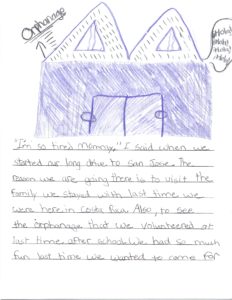 Orphanage
Hola!
Hola!
Hola!
"I'm so tired Mommy," I said when we
started our long drive to San Jose. The
reason we are going there is to visit the
family we stayed with last time we
were here in Costa Rica. Also, to see
the orphanage that we volunteered at
last time after school. We had so much
fun last time we wanted to come for